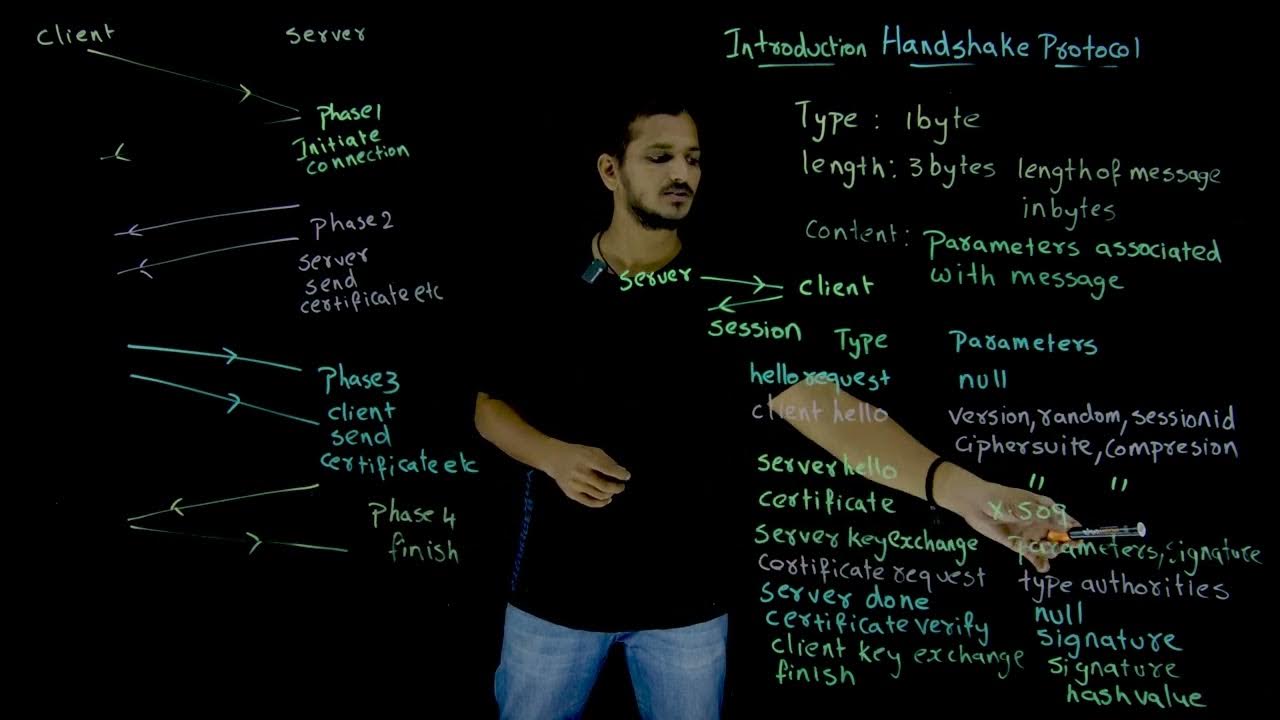 client server
phase1
Initiate
connection
phase2
server
send
certificate etc
phase3
client
send
certificate etc
phase 4
finish
Introduction Handshake Protocol
Type : 1byte
length: 3 bytes length of message
in bytes
content: parameters associated
with message
server client
session
Type parameters
hello request null
client hello version, random, sessionid
ciphersuite, compresion
server hello " "
certificate x.509
server key exchange parameters, signature
certificate request type authorities
server done null
certificate verify signature
client key exchange signature
finish hash value